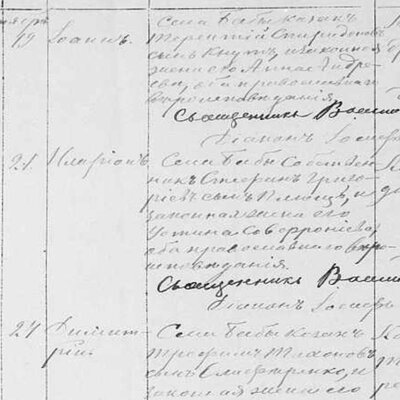 19 Іоаннъ. Села Бабы козакъ
Терентій Спиридоновъ
сынъ Кнутъ, и законная
жена его Анна
оба православнаго
вѣроисповѣданія.
Священникъ Васи
Діаконъ Іосифъ
21. Иларіонъ Села Бабы Собствен
никъ Стефанъ Григо
ріевъ сынъ Плющъ, и
законная жена его
Устина Софроніева,
оба православнаго вѣро
исповѣданія.
Священникъ Васи
Діаконъ Іосифъ
27 Димит Села Бабы козакъ
рій. Трофимъ
сынъ и
законная жена его